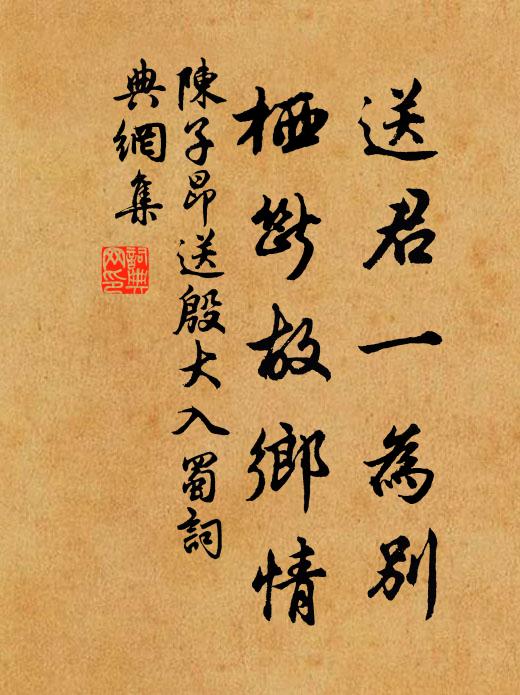 送君一為別
栖斷故鄉情
陳子昂送殷大入蜀詞
典網集
詞典
網印